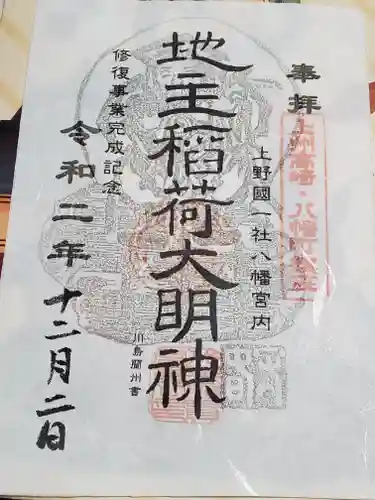 奉拝
上州高崎・八幡町鎮座
上野國一社八幡宮内
地主稲荷大明神
川島蘭州書
修復事業完成記念
令和二年
十二月二日